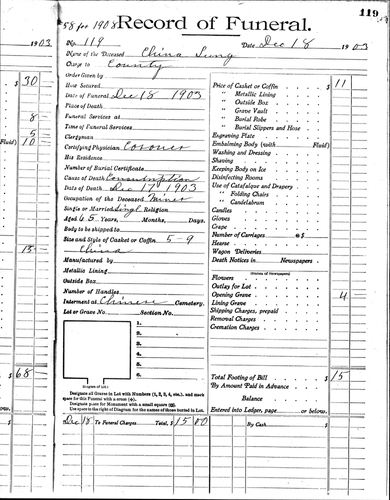 119
58 for 1908 Record of Funeral.
1903
No. 119
Date Dec 18 1903
Name of the Deceased China Sung
Charge to County
Order Given by
How Secured
Date of Funeral Dec 18 1903
Place of Death
Funeral Services at
Time of Funeral Services
Clergyman
Certifying Physician Coroner
His Residence
Number of Burial Certificate
Cause of Death Consumption
Date of Death Dec 17 1903
Occupation of the Deceased Miner
Single or Married Singl Religion
Aged 65 Years, Months, Days.
Body to be shipped to
Size and Style of Casket or Coffin 5-9
China
Manufactured by
Metallic Lining
Outside Box
Number of Handles
Interment at Chinese Cemetery.
Lot or Grave No. Section No.
1.
2.
3.
4.
5.
6.
(Diagram of Lot.)
Designate all Graves in Lot with Numbers (1, 2, 3, 4, etc.), and mark
space for this Funeral with a cross (+).
Designate place for Monument with a small square (□).
Use space to the right of Diagram for the names of those buried in Lot.
Dec 18 To Funeral Charges Total, $ 15 00
Price of Casket or Coffin $ 11
" Metallic Lining
" Outside Box
" Grave Vault
" Burial Robe
" Burial Slippers and Hose
Engraving Plate
Embalming Body (with Fluid)
Washing and Dressing
Shaving
Keeping Body on Ice
Disinfecting Rooms
Use of Catafalque and Drapery
" Folding Chairs
" Candelabrum
Candles
Gloves
Crape
Number of Carriages @ $
Hearse
Wagon Deliveries
Death Notices in Newspapers
(Names of Newspapers)
Flowers
Outlay for Lot
Opening Grave 4
Lining Grave
Shipping Charges, prepaid
Removal Charges
Cremation Charges
Total Footing of Bill $ 15
By Amount Paid in Advance
Balance
Entered into Ledger, page or below.
By Cash
$ 30
8
5
Fluid) 10
15
$ 68